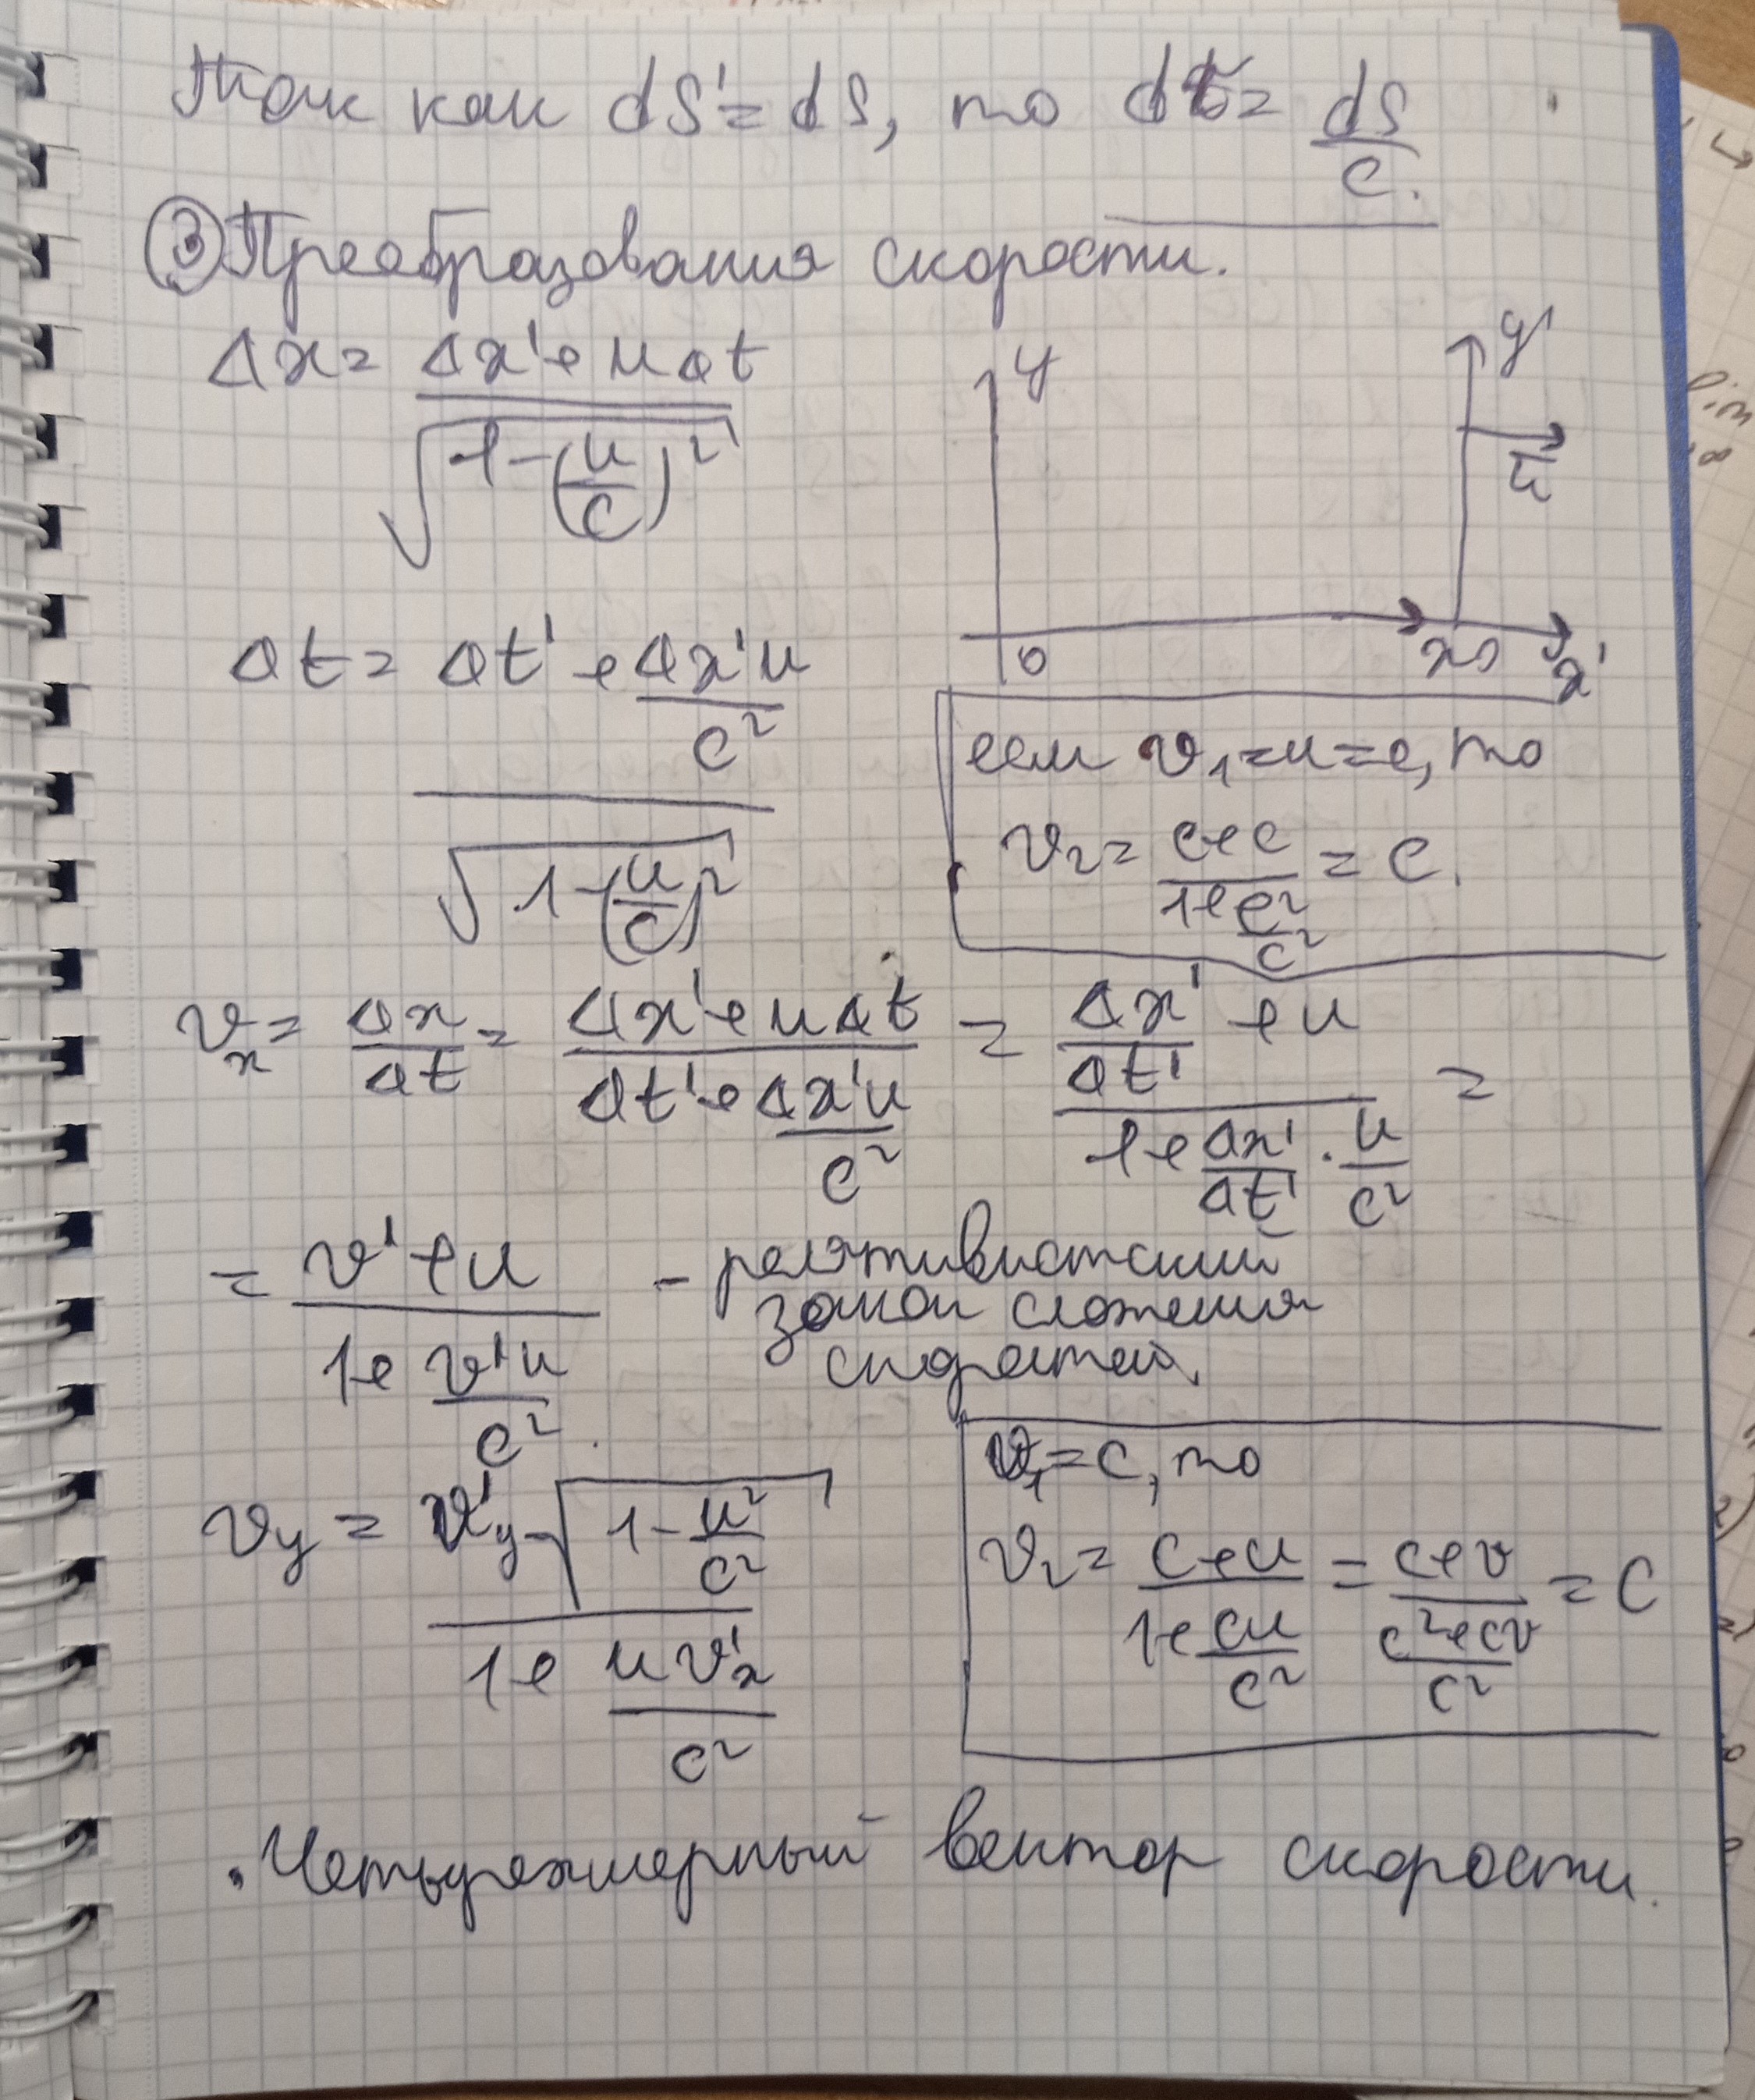 Так как dS' = dS, то dτ = dS/c.
③ Преобразования скорости.
Δx = (Δx' + uΔt) / √(1-(u/c)²)
y
y'
u
0
x
x'
Δt = (Δt' + Δx'u/c²) / √(1-(u/c)²)
если v₁ = u = c, то
v₂ = (c+c) / (1+c²/c²) = c.
vₓ = Δx/Δt = (Δx' + uΔt) / (Δt' + Δx'u/c²) = (Δx'/Δt' + u) / (1 + Δx'/Δt' · u/c²) =
= (v' + u) / (1 + v'u/c²) - релятивистский
закон сложения
скоростей.
v₁ = c, то
v₂ = (c+u) / (1+cu/c²) = (c+v) / ((c²+cv)/c²) = c
v_y = v'_y √(1 - u²/c²) / (1 + uv'ₓ/c²)
. Четырехмерный вектор скорости.